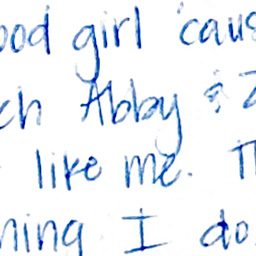 ood girl 'caus
ch Abby &
like me. Th
ning I do.